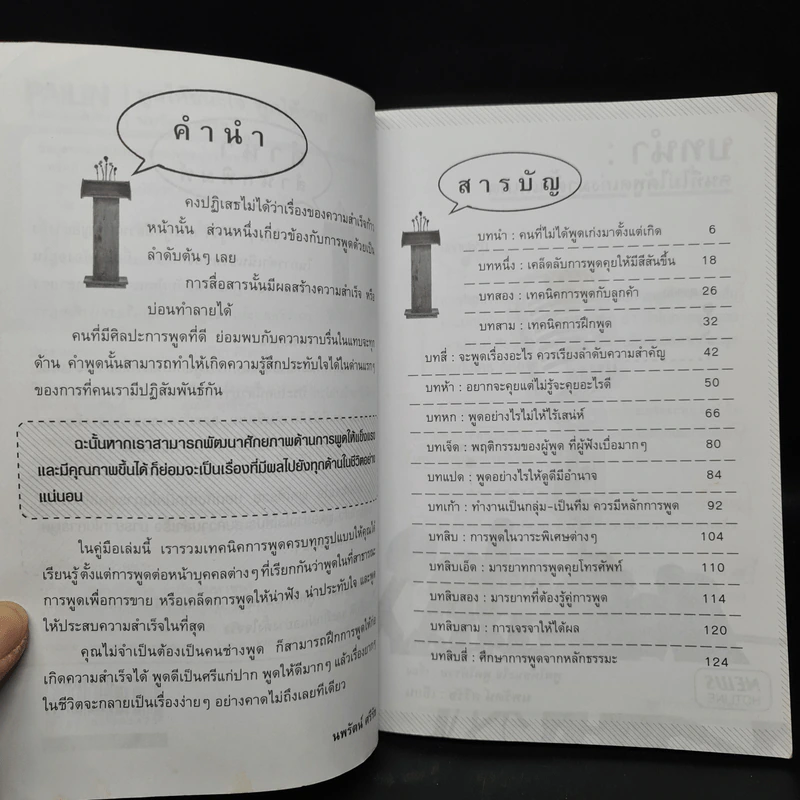 คำนำ
คงปฏิเสธไม่ได้ว่าเรื่องของความสำเร็จก้าว
หน้านั้น ส่วนหนึ่งเกี่ยวข้องกับการพูดด้วยเป็น
ลำดับต้นๆ เลย
การสื่อสารนั้นมีผลสร้างความสำเร็จ หรือ
บ่อนทำลายได้
คนที่มีศิลปะการพูดที่ดี ย่อมพบกับความราบรื่นในแทบจะทุก
ด้าน คำพูดนั้นสามารถทำให้เกิดความรู้สึกประทับใจได้ในด่านแรกๆ
ของการที่คนเรามีปฏิสัมพันธ์กัน
ฉะนั้นหากเราสามารถพัฒนาศักยภาพด้านการพูดให้แข็งแรง
และมีคุณภาพขึ้นได้ ก็ย่อมจะเป็นเรื่องที่มีผลไปยังทุกด้านในชีวิตอย่าง
แน่นอน
ในคู่มือเล่มนี้ เรารวมเทคนิคการพูดครบทุกรูปแบบให้คุณได้
เรียนรู้ ตั้งแต่การพูดต่อหน้าบุคคลต่างๆ ที่เรียกกันว่าพูดในที่สาธารณะ
การพูดเพื่อการขาย หรือเคล็ดการพูดให้น่าฟัง น่าประทับใจ และพูด
ให้ประสบความสำเร็จในที่สุด
คุณไม่จำเป็นต้องเป็นคนช่างพูด ก็สามารถฝึกการพูดให้ก่อ
เกิดความสำเร็จได้ พูดดีเป็นศรีแก่ปาก พูดให้ดีมากๆ แล้วเรื่องยากๆ
ในชีวิตจะกลายเป็นเรื่องง่ายๆ อย่างคาดไม่ถึงเลยทีเดียว
นพรัตน์
สารบัญ
บทนำ : คนที่ไม่ได้พูดเก่งมาตั้งแต่เกิด 6
บทหนึ่ง : เคล็ดลับการพูดคุยให้มีสีสันขึ้น 18
บทสอง : เทคนิคการพูดกับลูกค้า 26
บทสาม : เทคนิคการฝึกพูด 32
บทสี่ : จะพูดเรื่องอะไร ควรเรียงลำดับความสำคัญ 42
บทห้า : อยากจะคุยแต่ไม่รู้จะคุยอะไรดี 50
บทหก : พูดอย่างไรไม่ให้ไร้เสน่ห์ 66
บทเจ็ด : พฤติกรรมของผู้พูด ที่ผู้ฟังเบื่อมากๆ 80
บทแปด : พูดอย่างไรให้ดูดีมีอำนาจ 84
บทเก้า : ทำงานเป็นกลุ่ม-เป็นทีม ควรมีหลักการพูด 92
บทสิบ : การพูดในวาระพิเศษต่างๆ 104
บทสิบเอ็ด : มารยาทการพูดคุยโทรศัพท์ 110
บทสิบสอง : มารยาทที่ต้องรู้คู่การพูด 114
บทสิบสาม : การเจรจาให้ได้ผล 120
บทสิบสี่ : ศึกษาการพูดจากหลักธรรมะ 124